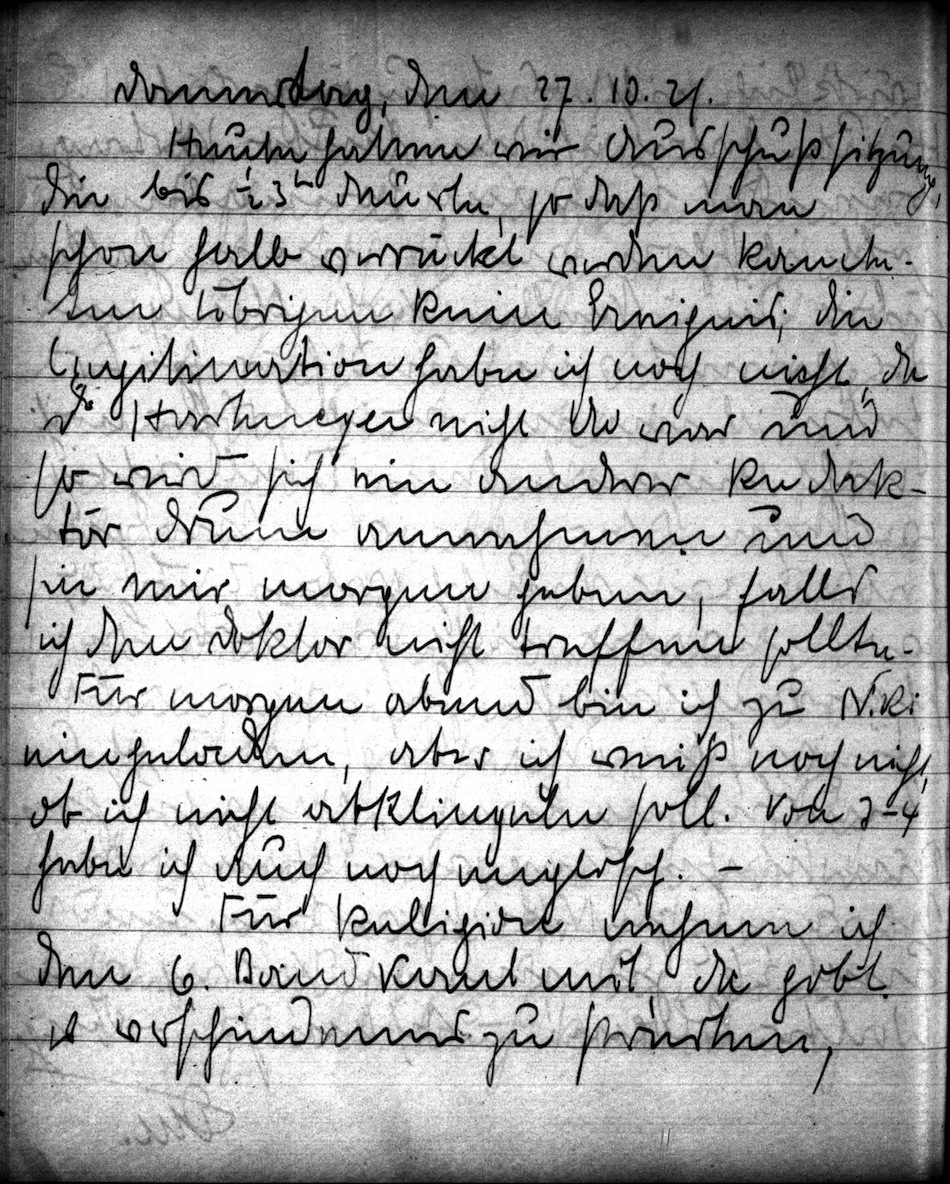 Donnerstag, den 27. 10. 21.
Heute hatten wir Ausschußsitzung,
die bis ½3h dauerte, so daß man
schon halb verrückt werden konnte.
Im übrigen kein Ereignis; die
Legitimation habe ich noch nicht, da
Dr Hartmeyer nicht da war und
so wird sich ein anderer Redak-
tör drum annehmen und
sie mir morgen geben, falls
ich den Doktor nicht treffen sollte.
Für morgen abend bin ich zu
eingeladen, aber ich weiß noch nicht,
ob ich nicht abklingeln soll. Von 3-4
habe ich auch noch englisch. –
Für Religion nehme ich
den 6. Band Kant mit, da gibt
es verschiedenes zu